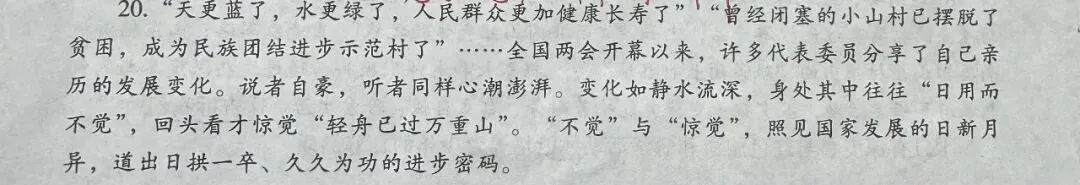 20. “天更蓝了，水更绿了，人民群众更加健康长寿了”“曾经闭塞的小山村已摆脱了
贫困，成为民族团结进步示范村了”……全国两会开幕以来，许多代表委员分享了自己亲
历的发展变化。说者自豪，听者同样心潮澎湃。变化如静水流深，身处其中往往“日用而
不觉”，回头看才惊觉“轻舟已过万重山”。“不觉”与“惊觉”，照见国家发展的日新月
异，道出日拱一卒、久久为功的进步密码。